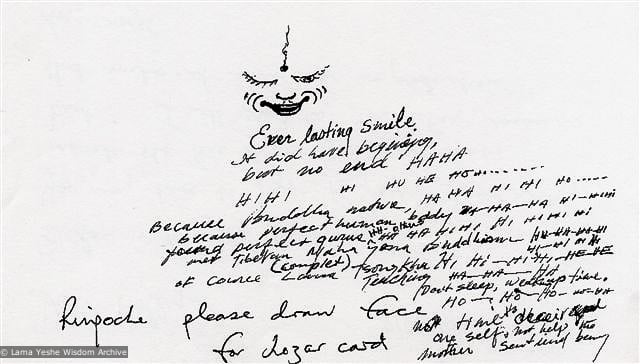 Ever lasting Smile
It did have begining,
but no end HAHA
HIHI HI HU HE HO.........
Because buddha nature, HA HA HI HI HO.....
because perfect human body HA-HA-HA HI-HIHI
perfect gurus, HA HA HIHI, HI HI HI HI
met Tibetan Mahayana Buddhism HA-HA-HA-HI
of cource Lama (complet) Tsong Khapa HI, HI-HI HI, HE-HE
Teaching HA-HA-HA
Dont sleep, wakeup time.
HO-HO-HO-HO-HA
Rinpoche please draw face
for Lozar card
not time to deceived
one self, not help the
mother sentiend being
© Lama Yeshe Wisdom Archive